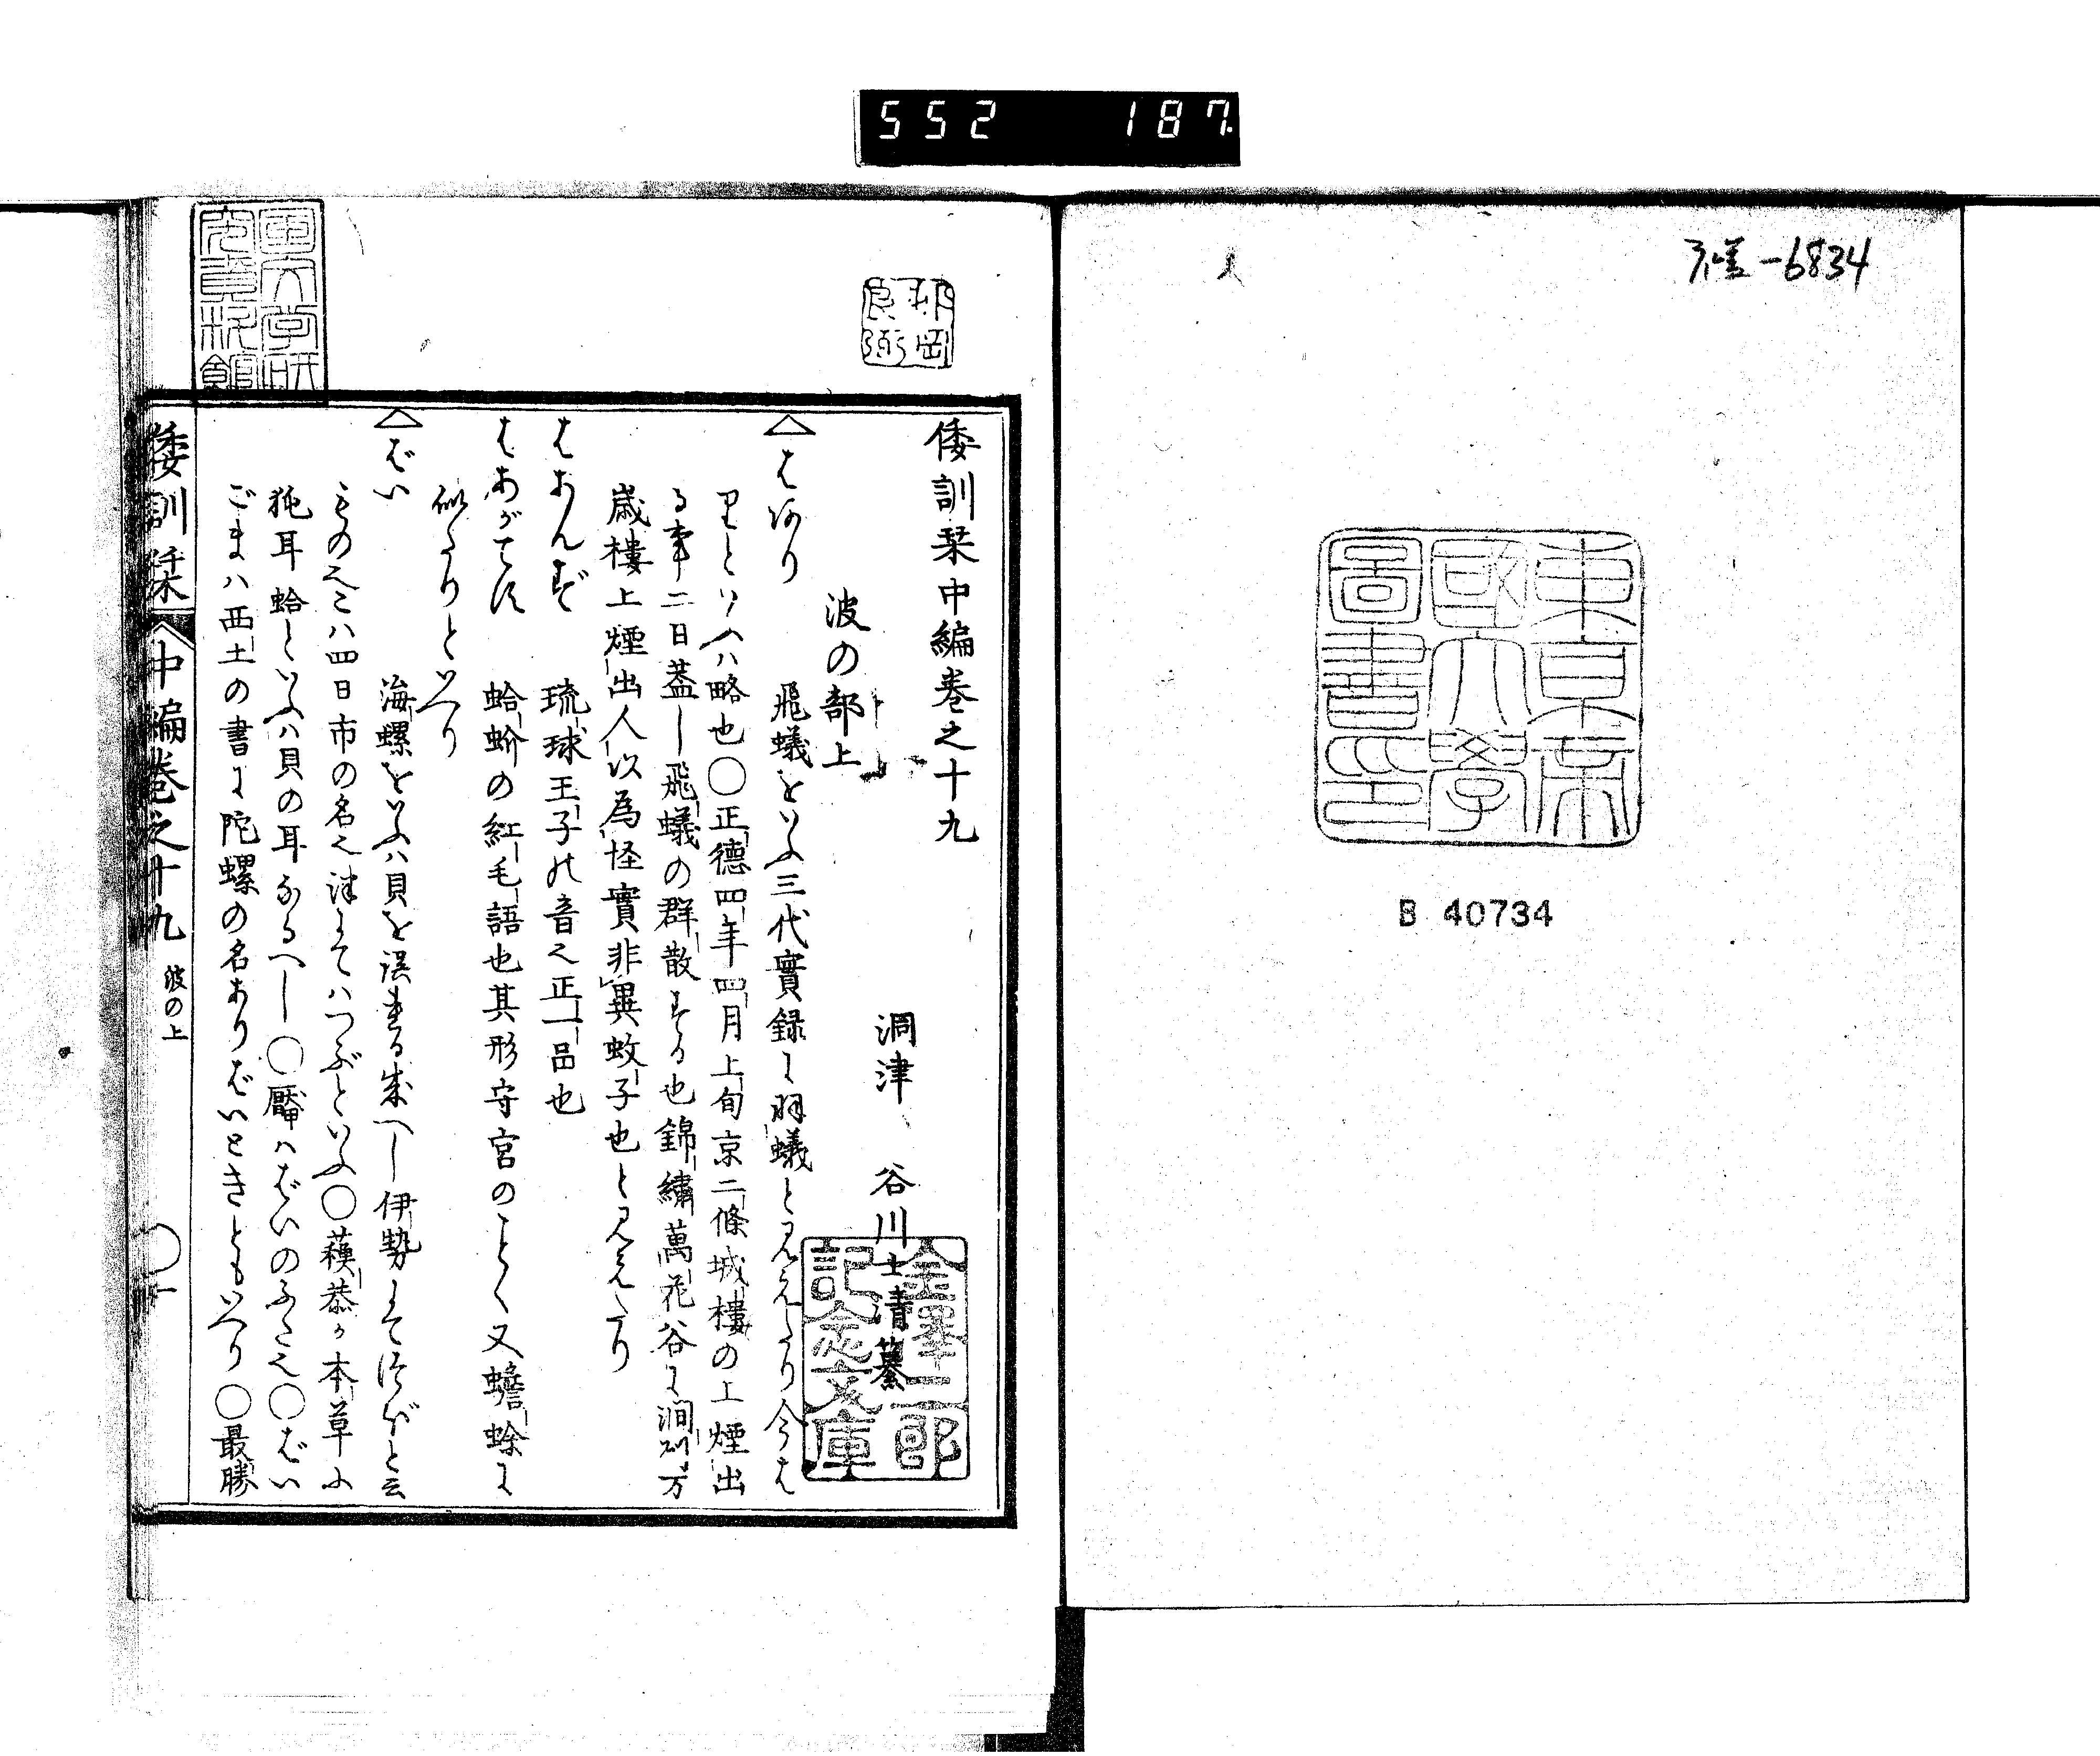 552 187.
-6834
東京帝
國大學
圖書印
B 40734
倭訓栞中編巻之十九
洞津 谷川士清纂
金澤庄三郎
記念文庫
波の部上
△はあり 飛蟻をいふ三代實録に羽蟻と見えたり今は
ありといへハ略也○正德四年四月上旬京二條城樓の上煙出
る事二日蓋し飛蟻の群散する也錦繡萬花谷に澗州万
歳樓上煙出人以爲怪實非異蚊子也と見えたり
はあんず 琉球王子の音之正一品也
はあがてに 蛤蚧の紅毛語也其形守宮のことく又蟾蜍に
似たりといへり
△ばい 海螺をいふハ貝を誤まる成へし伊勢にてにぶがと云
もの之こハ四日市の名之津にてハつぶといふ○蘓恭か本草に
㹠耳蛤といふハ貝の耳なるへし○厴ハばいのふた之○ばい
ごまハ西土の書に陀螺の名ありばいときともいへり○最勝
倭訓栞 中編巻之十九 波の上 ○一